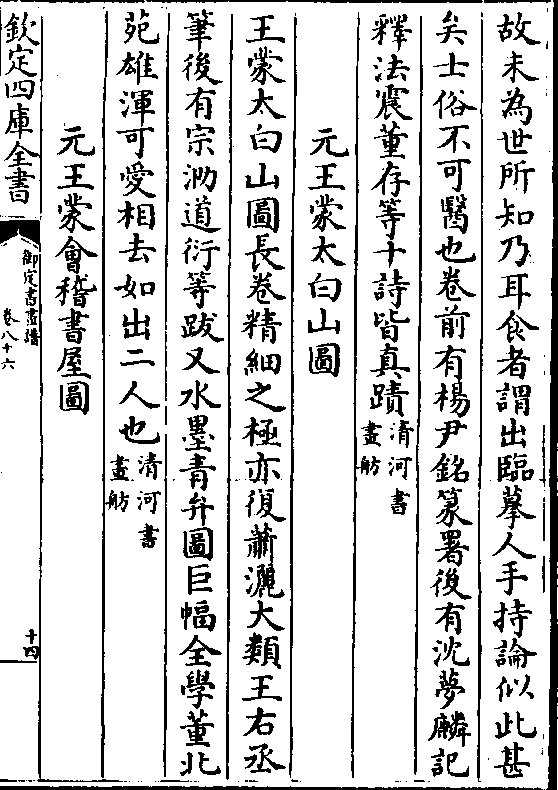 故未為世所知乃耳食者謂出臨摹人手持論似此甚
矣士俗不可醫也卷前有楊尹銘篆署後有沈夢麟記
釋法震董存等十詩皆真蹟清河書畫舫
元王蒙太白山圖
王蒙太白山圖長卷精細之極亦復蕭灑大類王右丞
筆後有宗泐道衍等跋又水墨青弁圖巨幅全學董北
苑雄渾可愛相去如出二人也清河書畫舫
元王蒙會稽書屋圖
欽定四庫全書
御定書畫譜
卷八十六
十四